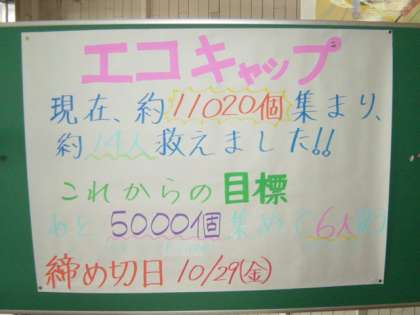 エコキャップ
現在、約11020個集まり、
約14人救えました!!
これからの目標
あと5000個集めて6人救う
締め切日 10/29(金)